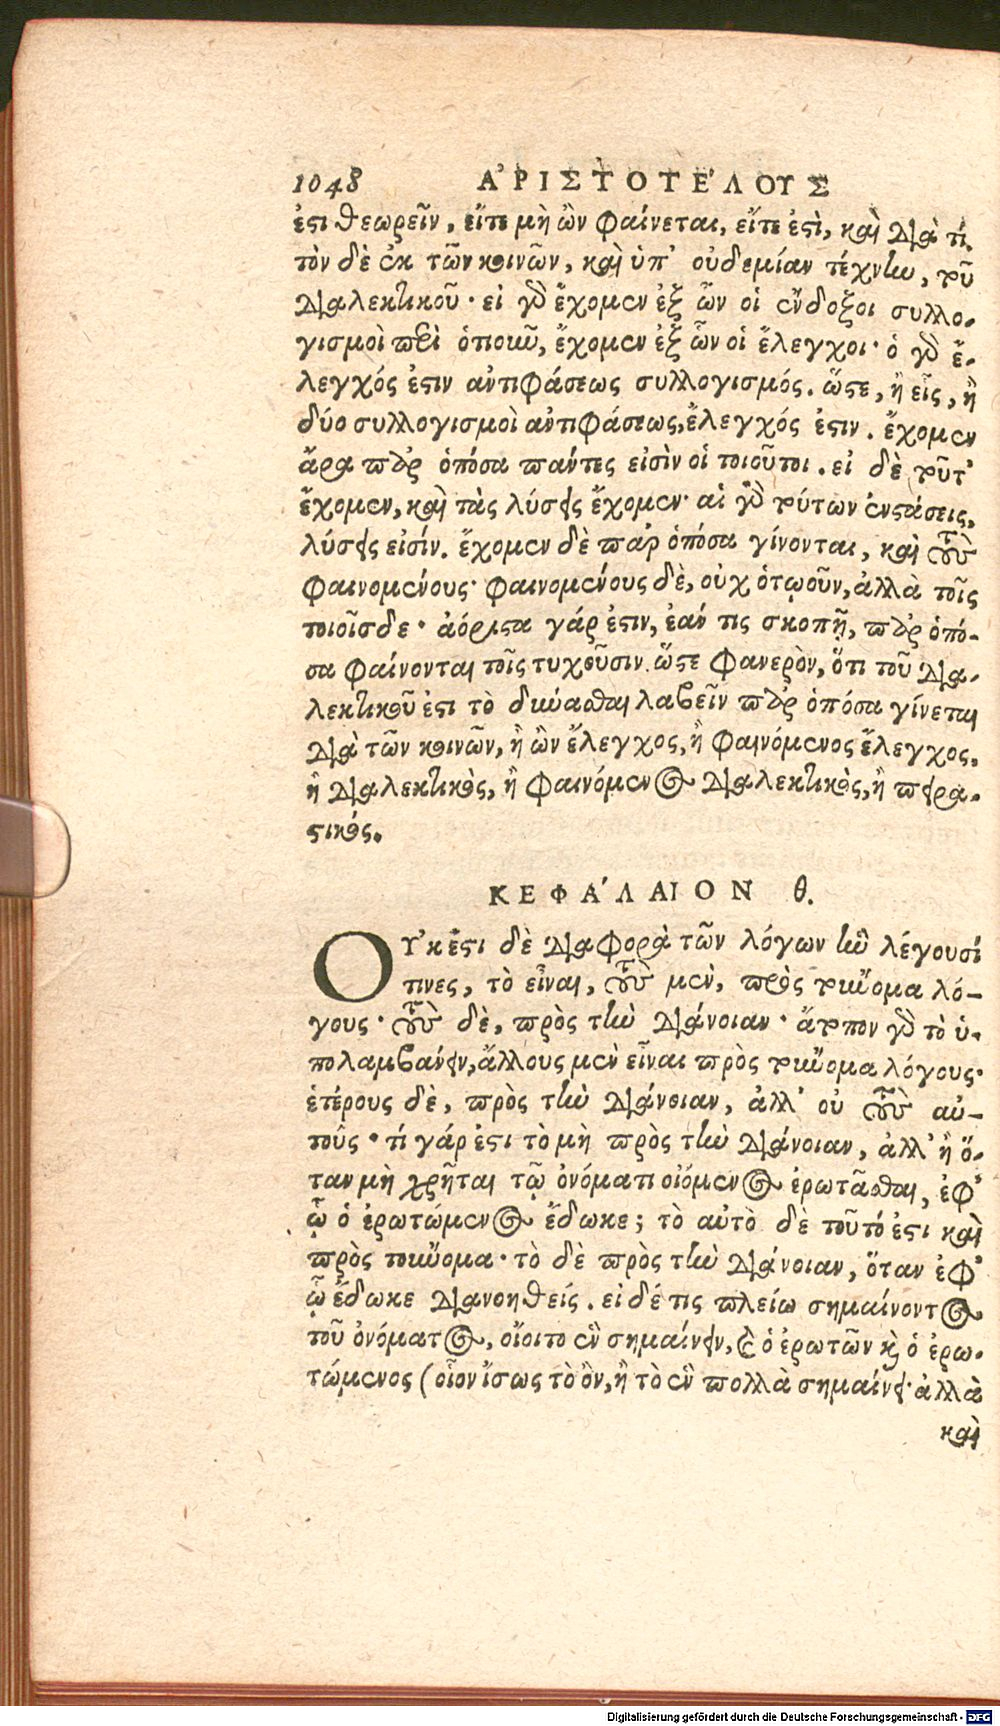 1048 ἈΡΙΣΤΟΤΕ´ΛΟΥΣ
ἐστι θεωρεῖν, εἴτε μὴ ὢν φαίνεται, εἴτε ἐστὶ, καὶ διὰ τί.
τὸν δὲ ἐκ τῶν κοινῶν, καὶ ὑπ' οὐδεμίαν τέχνην, τοῦ
διαλεκτικοῦ· εἰ γὰρ ἔχομεν ἐξ ὧν οἱ ἔνδοξοι συλλο-
γισμοὶ περὶ ὁποιοῦν, ἔχομεν ἐξ ὧν οἱ ἔλεγχοι· ὁ γὰρ ἔ-
λεγχός ἐστιν ἀντιφάσεως συλλογισμός. ὥστε, ἢ εἷς, ἢ
δύο συλλογισμοὶ ἀντιφάσεως, ἔλεγχός ἐστιν. ἔχομεν
ἄρα παρ' ὁπόσα πάντες εἰσὶν οἱ τοιοῦτοι. εἰ δὲ τοῦτ'
ἔχομεν, καὶ τὰς λύσεις ἔχομεν· αἱ γὰρ τούτων ἐνστάσεις,
λύσεις εἰσίν. ἔχομεν δὲ παρ' ὁπόσα γίνονται, καὶ τοὺς
φαινομένους· φαινομένους δὲ, οὐχ ὁτῳοῦν, ἀλλὰ τοῖς
τοιοῖσδε· ἀόριστα γάρ ἐστιν, ἐάν τις σκοπῇ, παρ' ὁπό-
σα φαίνονται τοῖς τυχοῦσιν. ὥστε φανερὸν, ὅτι τοῦ δια-
λεκτικοῦ ἐστι τὸ δύνασθαι λαβεῖν παρ' ὁπόσα γίνεται
διὰ τῶν κοινῶν, ἢ ὢν ἔλεγχος, ἢ φαινόμενος ἔλεγχος,
ἢ διαλεκτικὸς, ἢ φαινόμενος διαλεκτικὸς, ἢ πειρα-
στικός.
ΚΕΦΑ´ΛΑΙΟΝ θ.
ΟΥ᾿Κ ἔστι δὲ διαφορὰ τῶν λόγων ἣν λέγουσί
τινες, τὸ εἶναι, τοὺς μὲν, πρὸς τοὔνομα λό-
γους· τοὺς δὲ, πρὸς τὴν διάνοιαν· ἄτοπον γὰρ τὸ ὑ-
πολαμβάνειν, ἄλλους μὲν εἶναι πρὸς τοὔνομα λόγους·
ἑτέρους δὲ, πρὸς τὴν διάνοιαν, ἀλλ' οὐ τοὺς αὐ-
τούς· τί γάρ ἐστι τὸ μὴ πρὸς τὴν διάνοιαν, ἀλλ' ἢ ὅ-
ταν μὴ χρῆται τῷ ὀνόματι οἰόμενος ἐρωτᾶσθαι, ἐφ'
ᾧ ὁ ἐρωτώμενος ἔδωκε; τὸ αὐτὸ δὲ τοῦτό ἐστι καὶ
πρὸς τοὔνομα· τὸ δὲ πρὸς τὴν διάνοιαν, ὅταν ἐφ'
ᾧ ἔδωκε διανοηθείς. εἰ δέ τις πλείω σημαίνοντος
τοῦ ὀνόματος, οἴοιτο ἓν σημαίνειν, καὶ ὁ ἐρωτῶν καὶ ὁ ἐρω-
τώμενος (οἷον ἴσως τὸ ὂν, ἢ τὸ ἓν πολλὰ σημαίνει· ἀλλὰ
καὶ
Digitalisierung gefördert durch die Deutsche Forschungsgemeinschaft - DFG